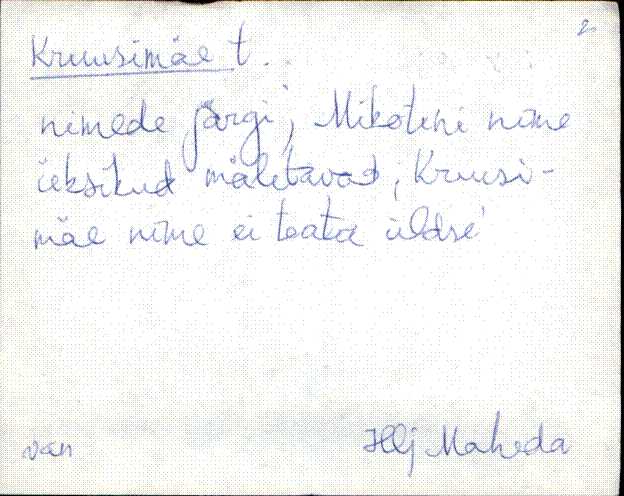 2.
Kruusimäe t.
nimede järgi; Mikoteni nime
üeksikud mäletavad; Kruusi-
mäe nime ei teata üldse
van Hlj Maheda